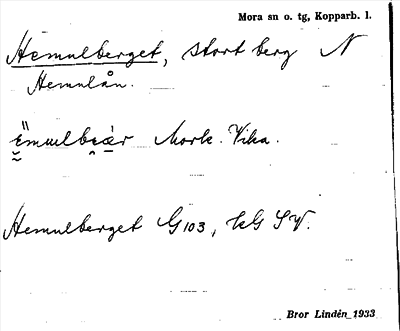 Mora sn o. tg, Kopparb. l.
Hemulberget, stort berg N
Hemulån.
Mork. Vika.
Hemulberget G103, kG SV.
Bror Lindén 1933